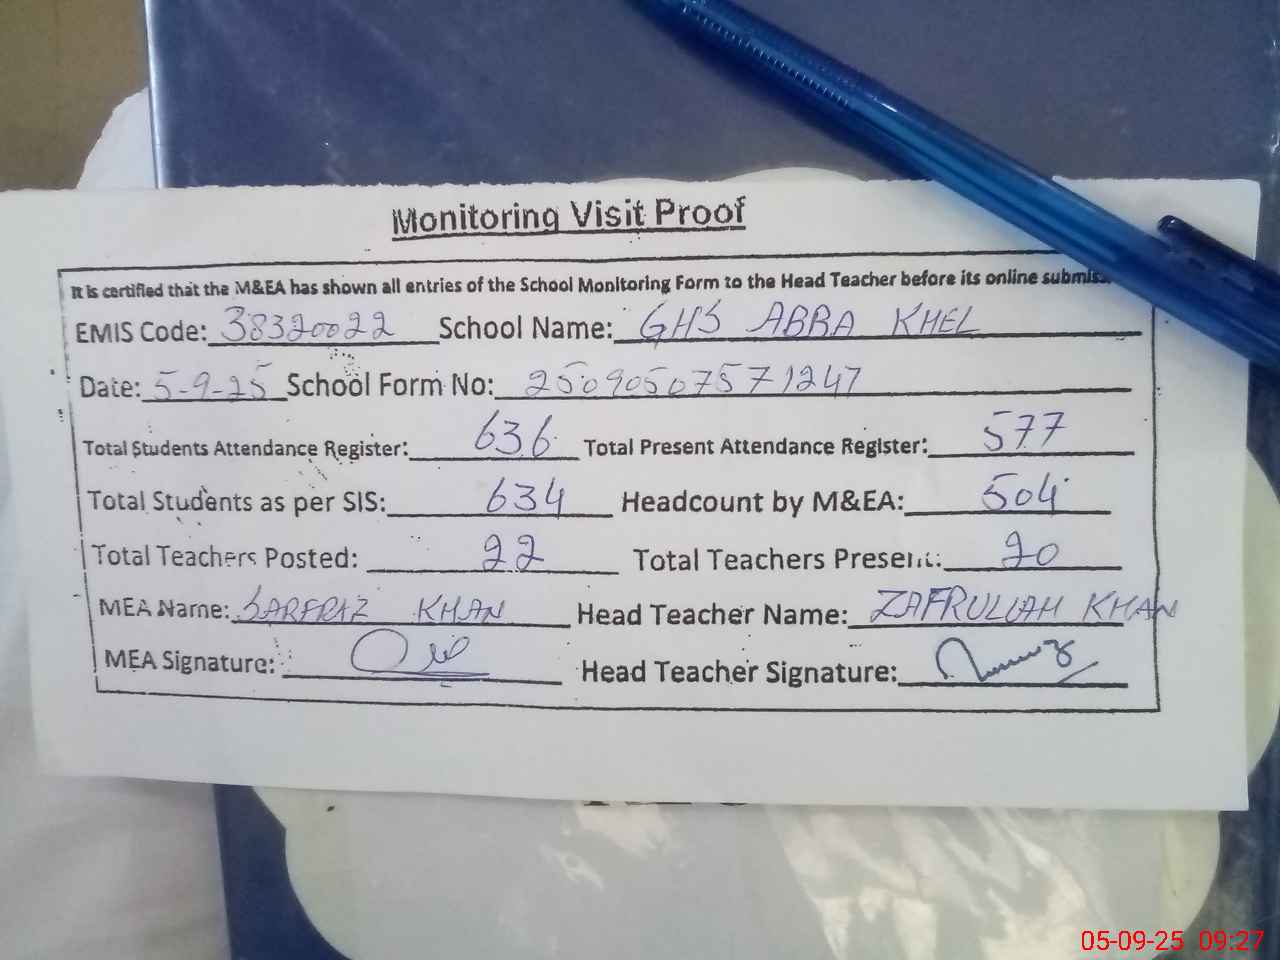 Monitoring Visit Proof
It is certified that the M&EA has shown all entries of the School Monitoring Form to the Head Teacher before its online submis
EMIS Code: 38320022 School Name: GHS ABBA KHEL
Date: 5-9-25 School Form No: 25090507571247
Total Students Attendance Register: 636 Total Present Attendance Register: 577
Total Students as per SIS: 634 Headcount by M&EA: 504
Total Teachers Posted: 22 Total Teachers Present: 20
MEA Name: SARFRAZ KHAN Head Teacher Name: ZAFRULLAH KHAN
MEA Signature: Head Teacher Signature:
05-09-25 09:27